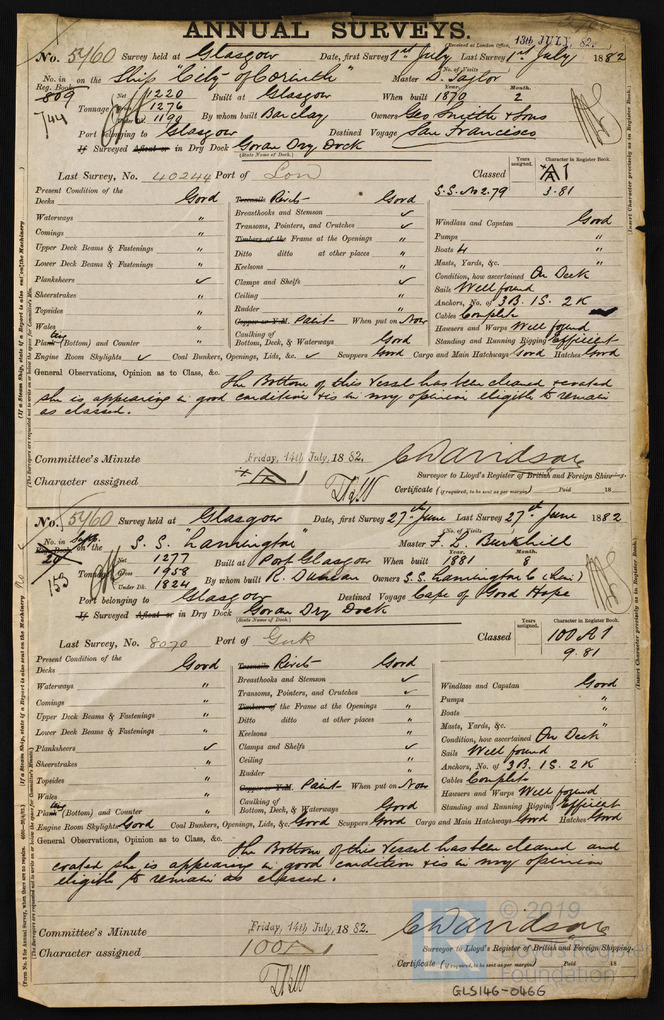 ANNUAL SURVEYS.
(Received at London Office, 13th JULY, 82.
No. 5460 Survey held at Glasgow Date, first Survey 1st July Last Survey 1st July 1882
No. in Reg. Book on the Ship "City of Corinth" Master D. Taylor
809
744
Tonnage Net 1220 Built at Glasgow When built Year. 1870 Month. 2
1276
1190 By whom built Barclay Owners Geo Smith & Sons
Port belonging to Glasgow Destined Voyage San Francisco
If Surveyed Afloat or in Dry Dock Govan Dry Dock
(State Name of Dock.)
Last Survey, No. 40244 Port of Lon Classed Years assigned. Character in Register Book. A1
S.S. No 2. 79 3.81
Present Condition of the
Decks Good
Waterways "
Comings "
Upper Deck Beams & Fastenings "
Lower Deck Beams & Fastenings "
Planksheers ✓
Sheerstrakes "
Topsides "
Wales "
Plank (Bottom) and Counter "
Treenails Rivets Good
Breasthooks and Stemson ✓
Transoms, Pointers, and Crutches ✓
Timbers of the Frame at the Openings "
Ditto ditto at other places "
Keelsons "
Clamps and Shelfs ✓
Ceiling "
Rudder "
Copper or Y.M. Paint When put on Now
Caulking of Bottom, Deck, & Waterways Good
Windlass and Capstan Good
Pumps "
Boats 4 "
Masts, Yards, &c. "
Condition, how ascertained On Deck
Sails Well found
Anchors, No. of 3B. 1S. 2K
Cables Complete
Hawsers and Warps Well found
Standing and Running Rigging Efficient
Engine Room Skylights ✓ Coal Bunkers, Openings, Lids, &c. ✓ Scuppers Good Cargo and Main Hatchways Good Hatches Good
General Observations, Opinion as to Class, &c. The Bottom of this vessel has been cleaned & coated
she is appearing in good condition & is in my opinion eligible to remain
as classed.
Committee's Minute Friday, 14th July, 1882.
Character assigned
C Davidson
Surveyor to Lloyd's Register of British and Foreign Shipping.
Certificate (if required, to be sent as per margin) Paid 18
No. 5460 Survey held at Glasgow Date, first Survey 27th June Last Survey 27th June 1882
No. in Supp. on the S.S. "Lannington" Master F. L. Burkhill
20
153
Tonnage Net 1277 Built at Port Glasgow When built Year. 1881 Month. 8
Gross 1958
Under Dk. 1824 By whom built R. Duncan Owners S.S. Lannington Co (Lim)
Port belonging to Glasgow Destined Voyage Cape of Good Hope
If Surveyed Afloat or in Dry Dock Govan Dry Dock
(State Name of Dock.)
Last Survey, No. 8070 Port of Gnk Classed Years assigned. Character in Register Book. 100 A1
9.81
Present Condition of the
Decks Good
Waterways "
Comings "
Upper Deck Beams & Fastenings "
Lower Deck Beams & Fastenings "
Planksheers ✓
Sheerstrakes "
Topsides "
Wales "
Plank (Bottom) and Counter "
Treenails Rivets Good
Breasthooks and Stemson ✓
Transoms, Pointers, and Crutches ✓
Timbers of the Frame at the Openings "
Ditto ditto at other places "
Keelsons "
Clamps and Shelfs ✓
Ceiling "
Rudder "
Copper or Y.M. Paint When put on Now
Caulking of Bottom, Deck, & Waterways Good
Windlass and Capstan Good
Pumps "
Boats "
Masts, Yards, &c. "
Condition, how ascertained On Deck
Sails Well found
Anchors, No. of 3B. 1S. 2K
Cables Complete
Hawsers and Warps Well found
Standing and Running Rigging Efficient
Engine Room Skylights Good Coal Bunkers, Openings, Lids, &c. Good Scuppers Good Cargo and Main Hatchways Good Hatches Good
General Observations, Opinion as to Class, &c. The Bottom of this vessel has been cleaned and
coated she is appearing in good condition & is in my opinion
eligible to remain as classed.
Committee's Minute Friday, 14th July, 1882.
Character assigned 100A1
C Davidson
Surveyor to Lloyd's Register of British and Foreign Shipping.
Certificate (if required, to be sent as per margin) Paid 18
© 2019
Lloyd's Register
Foundation
GLS146-0466